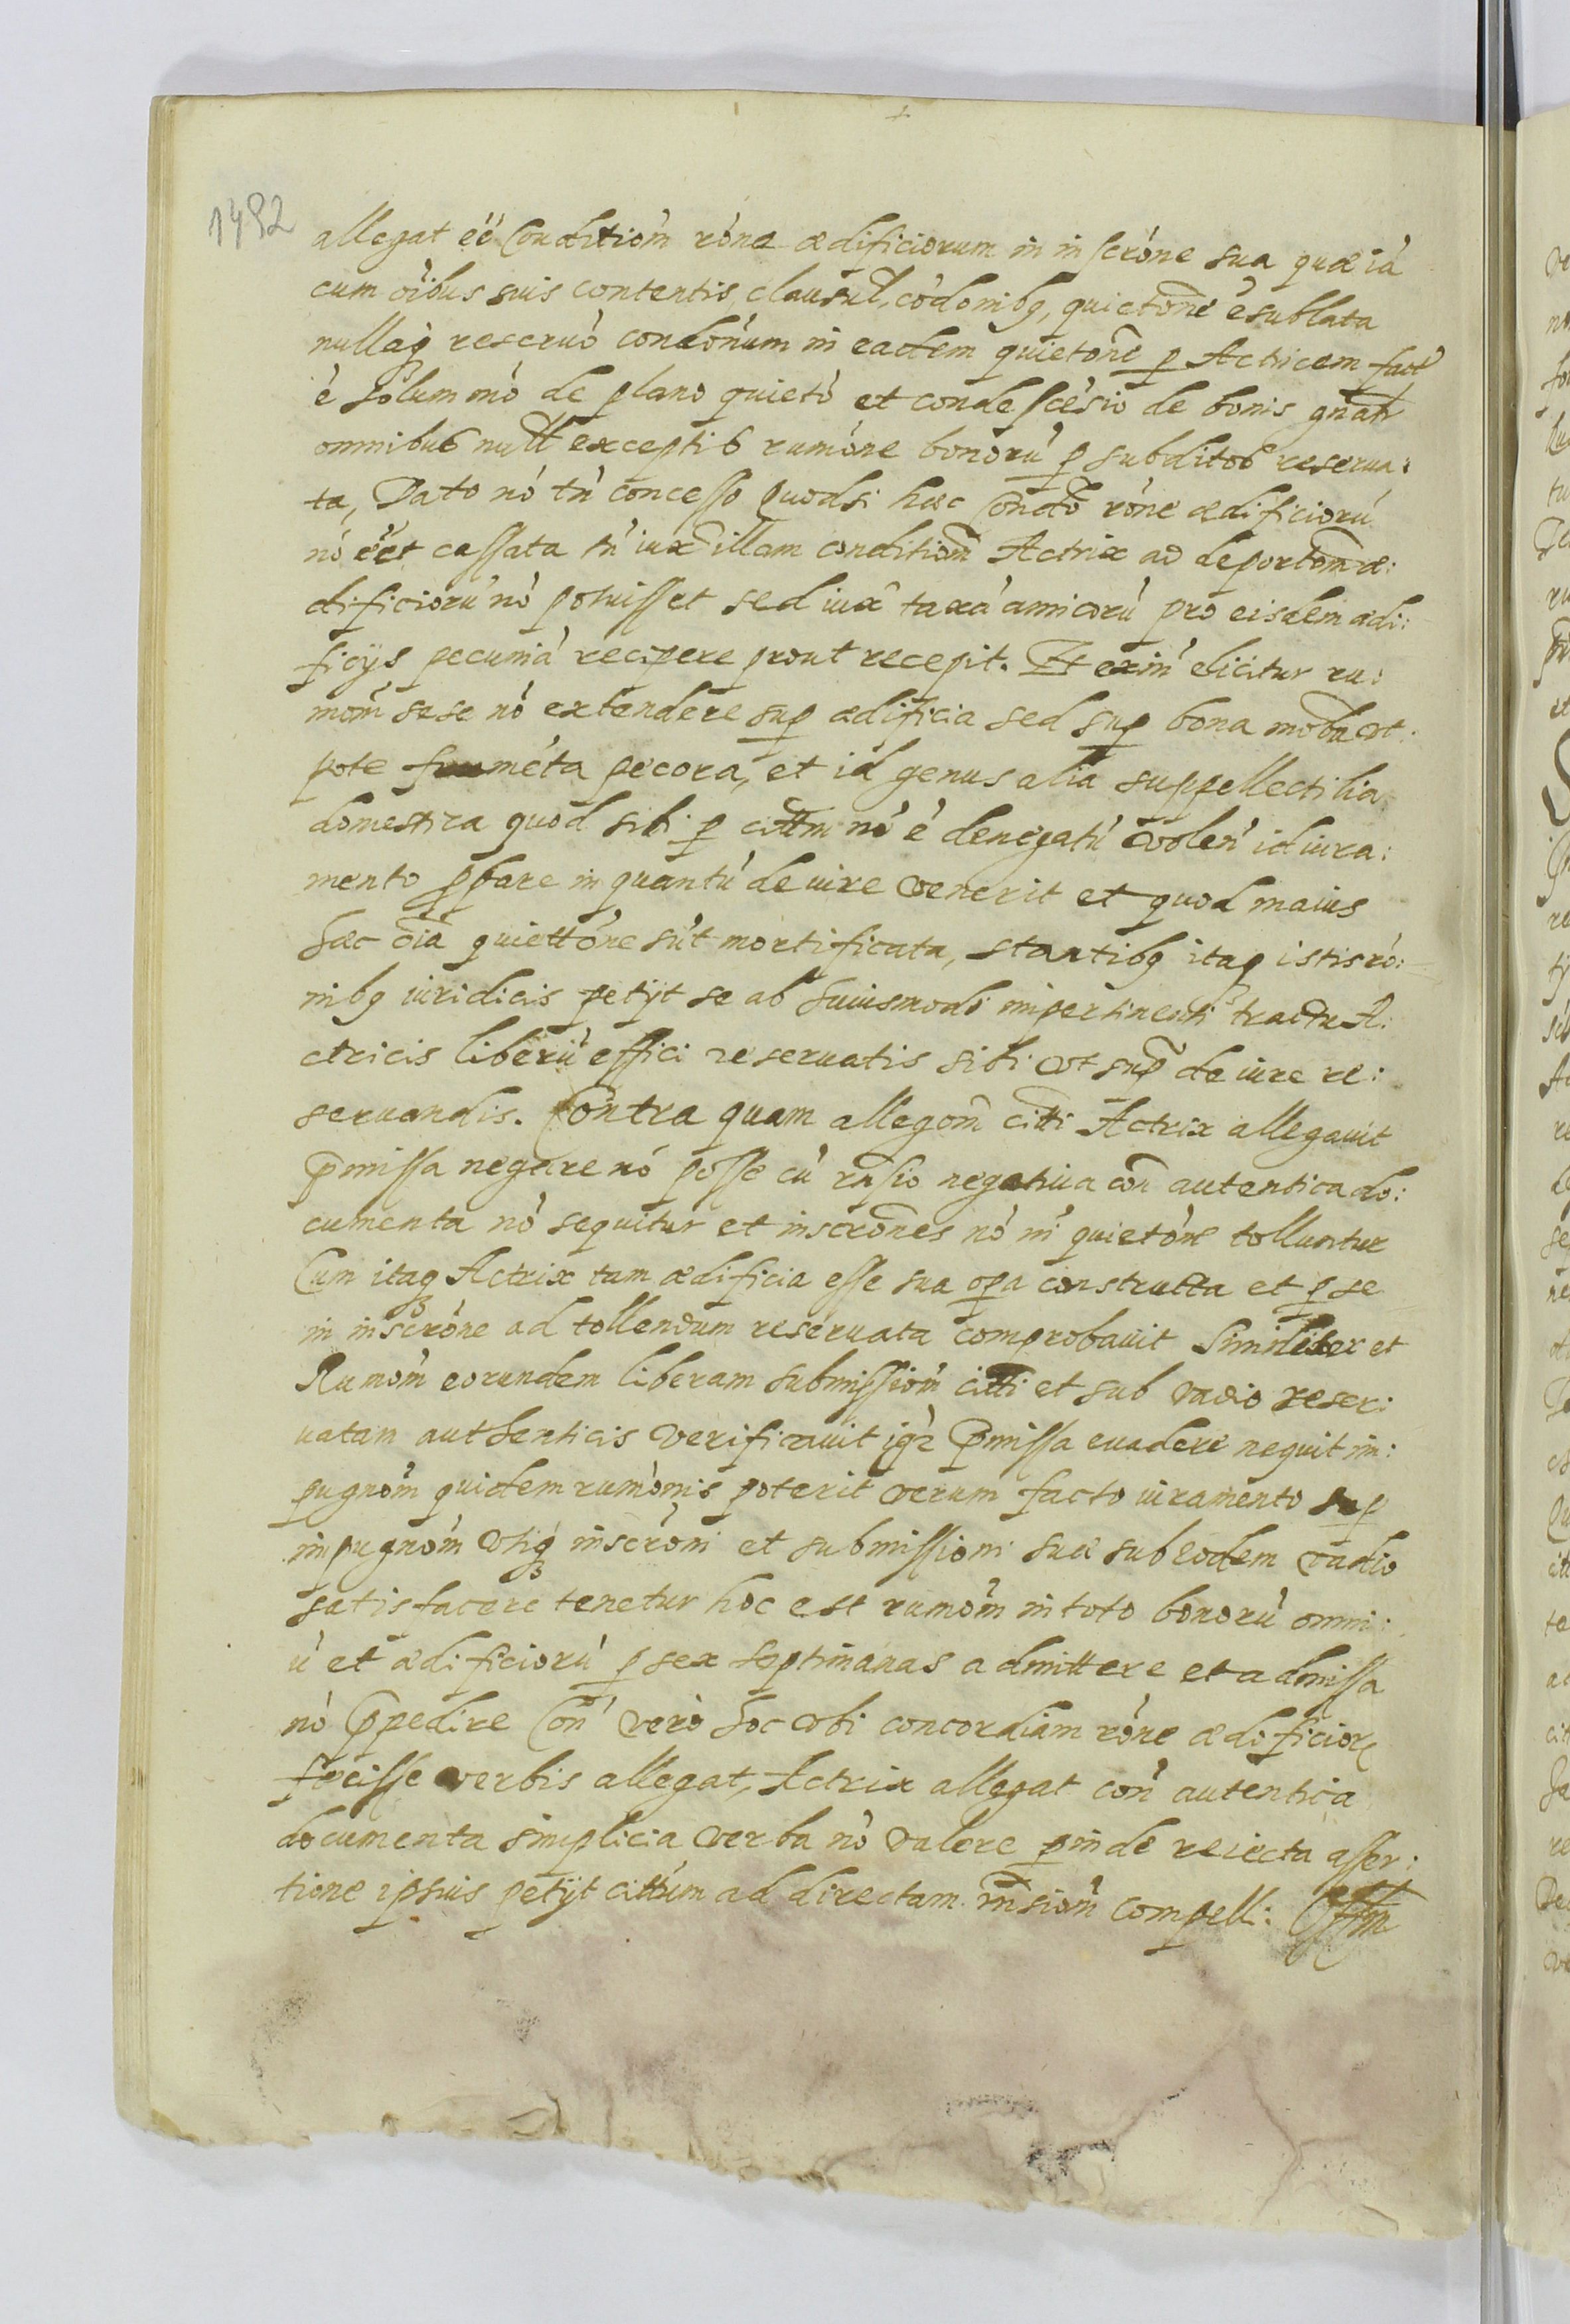 1492
allegat éé Conditiom̃ rõne ædificiorum in inscrõne sua quæ iã
cum oĩbus suis contentis, clausul, cõdonibꝫ, quietone ẽ sublata
nullaqꝫ reseruõ condõnum in eadem quietone ꝑ Actricem fact
ẽ solummõ de plano quietõ et condescẽsio de bonis gnãlr
omnibus null exceptis rumõne bonorũ ꝑ subditos reserua:
ta, Dato nõ tñ concesso quodsi hæc Condtõ rõne ædificiorũ
nõ eẽt cassata tñ iuxᵃ illam conditiom̃ Actrix ad deportom̃ æ:
dificiorũ nõ potuisset sed iuxᵃ taxã amicorũ pro eisdem ædi:
ficijs pecuniã recipere prout recepit. Et exiñ elicitur ru:
mom̃ sese nõ extendere suꝑ ædificia sed suꝑ bona mobã ut:
pote frumẽta pecora, et id genus alia suppellectilia
domestica quod sibi ꝑ cittm nõ ẽ denegatũ volen̄ id iura:
mento ꝓbare in quantũ de iure venerit et quod maius
hæc oĩa quiettõne sũt mortificata, stantibꝫ itaqꝫ istis rõ:
nibꝫ iuridicis petijt se ab huiusmodi impertinenti tractu A:
ctricis liberũ effici reseruatis sibi vt supᵃ de iure re:
seruandis. Contra quam allegom̃ citti Actrix allegauit
p̃missa negare nõ posse cũ rñsio negatiua con̄ autentica do:
cumenta nõ sequitur et inscrõnes nõ ni quietõne tolluntur
Cum itaqꝫ Actrix tam ædificia esse sua opa constructa et ꝑ se
in inscrõne ad tollendum reseruata comprobauit Similiter et
Rumom̃ eorundem liberam submissiom̃ citti et sub vadio reser:
uatam authenticis verificauit igr̃ p̃missa euadere nequit im:
pugnom̃ quidem rumõnis poterit verum facto iuramento suꝑ
impugnom̃ vtiqꝫ inscrõni et submissioni suæ sub eodem vadio
satisfacere tenetur hoc est rumom̃ in toto bonorũ omni:
ũ et ædificiorũ ꝑ sex septimanas admittere et admissa
nõ p̃pedire Con̄ verò hoc vbi concordiam rõne ædificior
fecisse verbis allegat, Actrix allegat con̄ autentica
documenta simplicia verba nõ valere ꝓinde reiecta asser:
tione ipsius petijt cittum ad directam rñsiom̃ compelli: Cittm